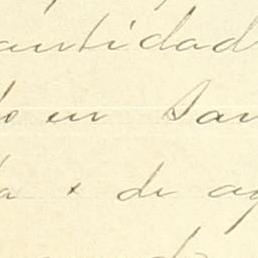 antidad
o en San
a x de ag